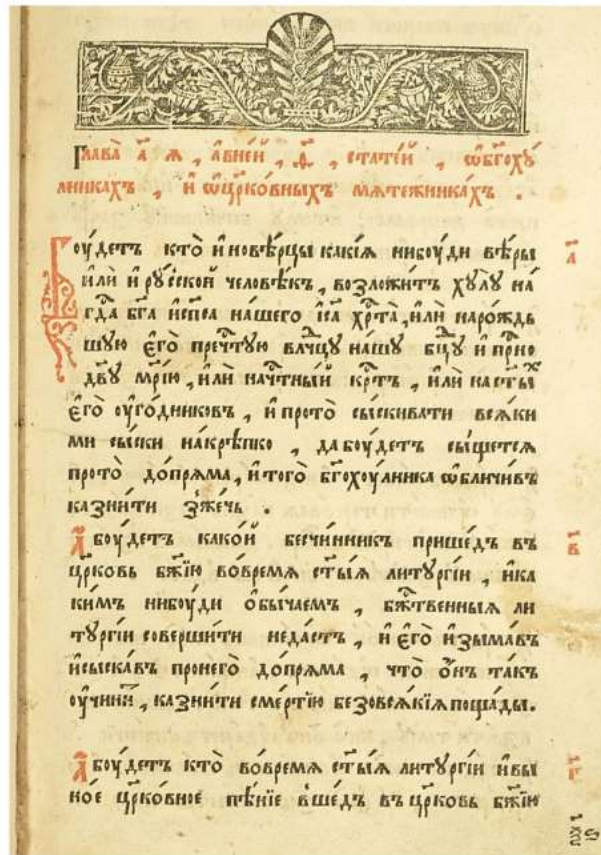 Глава̀ а҃ я , а̀в не́й , ѳ҃ , стате́й , ѡ҆ бг҃оху́
лникахъ , и҆ ѡ҆ цр҃ко́вныхъ мяте́жникахъ .
Боу́детъ кто̀ и҆нове́рцы какі́я нибоу́ди вѣ́ры
и҆лѝ и҆ ру́сской человѣ́къ , возложи́тъ хулꙋ̀ на́
гдⷭ҇а бг҃а и҆ сп҃са на́шего і҆с҃а хрⷭ҇та̀ , и҆лѝ наро́ждь
шую є҆го̀ пречⷭ҇тую влⷣчцу на́шу бцⷣу и҆ прⷭ҇но
дв҃у мр҃і́ю , и҆лѝ начⷭ҇тны́й крⷭ҇тъ , и҆лѝ на ст҃ы́ⷯ
є҆го̀ оу҆го́дников , и҆ прото̀ сы́скивати вся́ки
ми сы́ски на́крѣпко , да боу́детъ сы́щется
прото̀ до́пряма , и҆ того̀ бг҃охоу́лника ѡ҆бличи́в
казни́ти зже́чь .
а҆ боу́детъ како́й бесчи́нникъ прише́дъ въ
цр҃ковь бж҃ію во́время ст҃ы́я литургі́и , и҆ ка
ки́мъ нибоу́ди ѻ҆бы́чаемъ , бжⷭ҇твенныя ли
тургі́и соверши́ти неда́стъ , и҆ є҆го̀ и҆зыма́въ
и҆ сыска́въ пронего̀ до́пряма , что̀ ѻ҆́нъ та́къ
оу҆чини́т , казни́ти сме́ртію безовся́кія поща́ды.
а҆ боу́детъ кто̀ во́время ст҃ы́я литургі́и и҆ вы
но́е цр҃ко́вное пѣ́ніе вше́дъ въ цр҃ковь бж҃ію
а҃
в҃
г҃